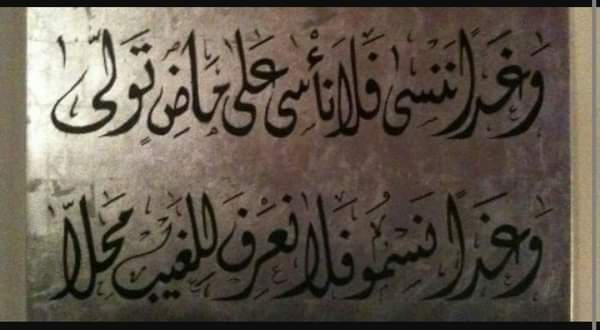 وَغَدًا نَنسى فَلَا نَأْسى عَلى مَاضٍ تَولَّى
وَغدًا نَسْمُو فَلَا نَعْرِفُ لِلغَيبِ مَحَلّا